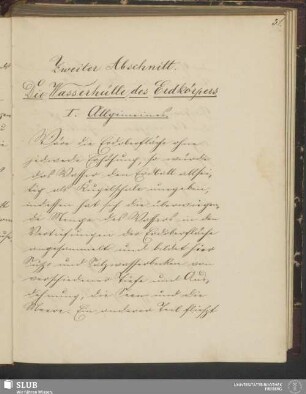 Zweiter Abschnitt.
Die Wasserhülle des Erdkörpers
I. Allgemeines.
Wäre die Erdoberfläche ohne
jedwede Erhöhung, so würde
das Wasser den Erdball allsei-
tig als Kugelschale umgeben,
indessen hat sich die überwiegen-
de Menge des Wassers in den
Vertiefungen der Erdoberfläche
angesammelt und bildet hier
Süß- und Salzwasserbecken von
verschiedener Tiefe und Aus-
dehnung, die Seen und die
Meere. Ein anderer Teil fließt
SLUB
Wir führen Wissen.